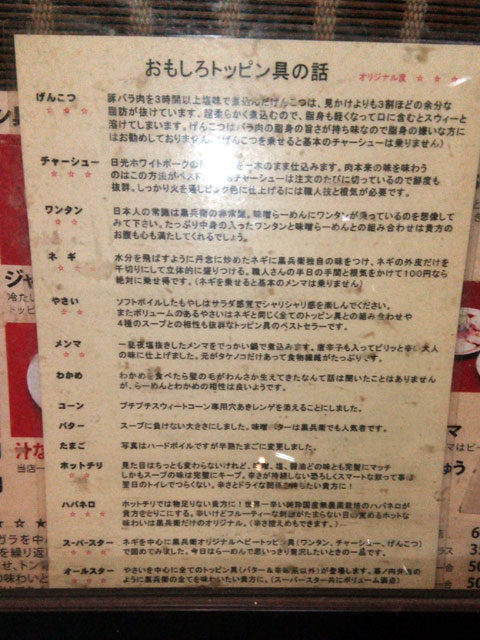 おもしろトッピン具の話 オリジナル度 ☆ ☆ ☆
げんこつ 豚バラ肉を3時間以上塩味で煮込んだげんこつは、見かけよりも3割ほどの余分な
脂肪が抜けています。超柔らかく煮込むので、脂身も軽くなって口に含むとスウィーと
溶けてしまいます。げんこつはバラ肉の脂身の旨さが持ち味なので脂身の嫌いな方に
はお勧めしておりません。(げんこつを乗せると基本のチャーシューは乗りません)
チャーシュー 日光ホワイトポークの 一本のまま仕込みます。肉本来の味を味わう
のはこの方法がベスト チャーシューは注文のたびに切っているので鮮度も
抜群。しっかり火を通しピンク色に仕上げるには職人技と根気が必要です。
ワンタン 日本人の常識は黒兵衛の非常識。味噌らーめんにワンタンが浮っているのを想像して
みて下さい。たっぷり中身の入ったワンタンと味噌らーめんとの組み合わせは貴方の
お腹も心も満たしてくれるでしょう。
ネギ 水分を飛ばすように丹念に炒めたネギに黒兵衛独自の味をつけ、ネギの外皮だけを
千切りにして立体的に盛りつける。職人さんの半日の手間と根気をかけて100円なら
絶対に乗せ得です。(ネギを乗せると基本のメンマは乗りません)
やさい ソフトボイルしたもやしはサラダ感覚でシャリシャリ感を楽しんでください。
またボリュームのあるやさいはネギと同じく全てのトッピン具との組み合わせや
4種のスープとの相性も抜群なトッピン具のベストセラーです。
メンマ 一昼夜塩抜きしたメンマをでっかい鍋で煮込みます。唐辛子も入ってピリッと辛い大人
の味に仕上げました。元がタケノコだけあって食物繊維がたっぷりです。
わかめ わかめを食べたら髪の毛がわんさか生えてきたなんて話は聞いたことはありません
が、らーめんとわかめの相性は良いようです。
コーン プチプチスウィートコーン専用穴あきレンゲを添えることにしました。
バター スープに負けない大きさにしました。味噌バターは黒兵衛でも人気者です。
たまご 写真はハードボイルですが半熟たまごに変更しました。
ホットチリ 見た目はちっとも変わらないけれど、味噌、塩、醤油どの味とも完璧にマッチ
しかもスープの味は完璧にキープ。辛さが持続しない恐ろしくスマートな奴って事は
翌日のトイレでつらくない。辛さとドライな関係を持ちたい貴方に!
ハバネロ ホットチリでは物足りない貴方に!世界一辛い 農園栽培のハバネロが
貴方をとりこにする。辛いけどフルーティーな刺激がたまらない目の覚めるホットな
味わいは黒兵衛だけのオリジナル。(辛さ控えめもできます。)
スーパースター ネギを中心に黒兵衛オリジナルヘビートッピン具(ワンタン、チャーシュー、げんこつ)
で固めてみました。今日はらーめんで思いっきり贅沢したいときの一品です。
オールスター やさいを中心に全てのトッピン具(バター&辛味 以外)が登場します。幕ノ内弁当の
ように黒兵衛の全てを味わいたい貴方に。(スーパースター共にボリューム満点)